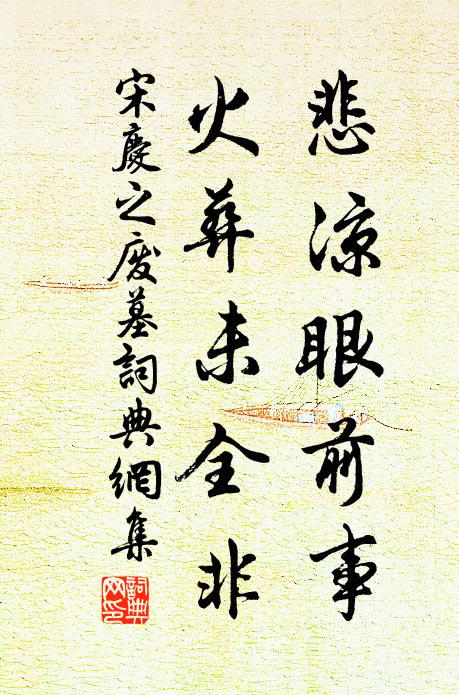 悲涼眼前事
火葬未全非
宋慶之廢墓詞典網集
詞典
网印